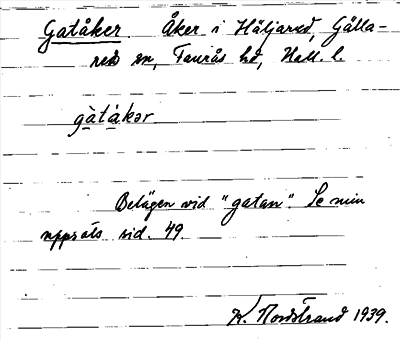 Gatåker. Åker i Häljared, Gålla-
red sn, Faurås hd, Hall. l.
gàtåkər
Belägen vid "gatan". Se min
uppsats sid. 49.
K. Nordstrand 1939.